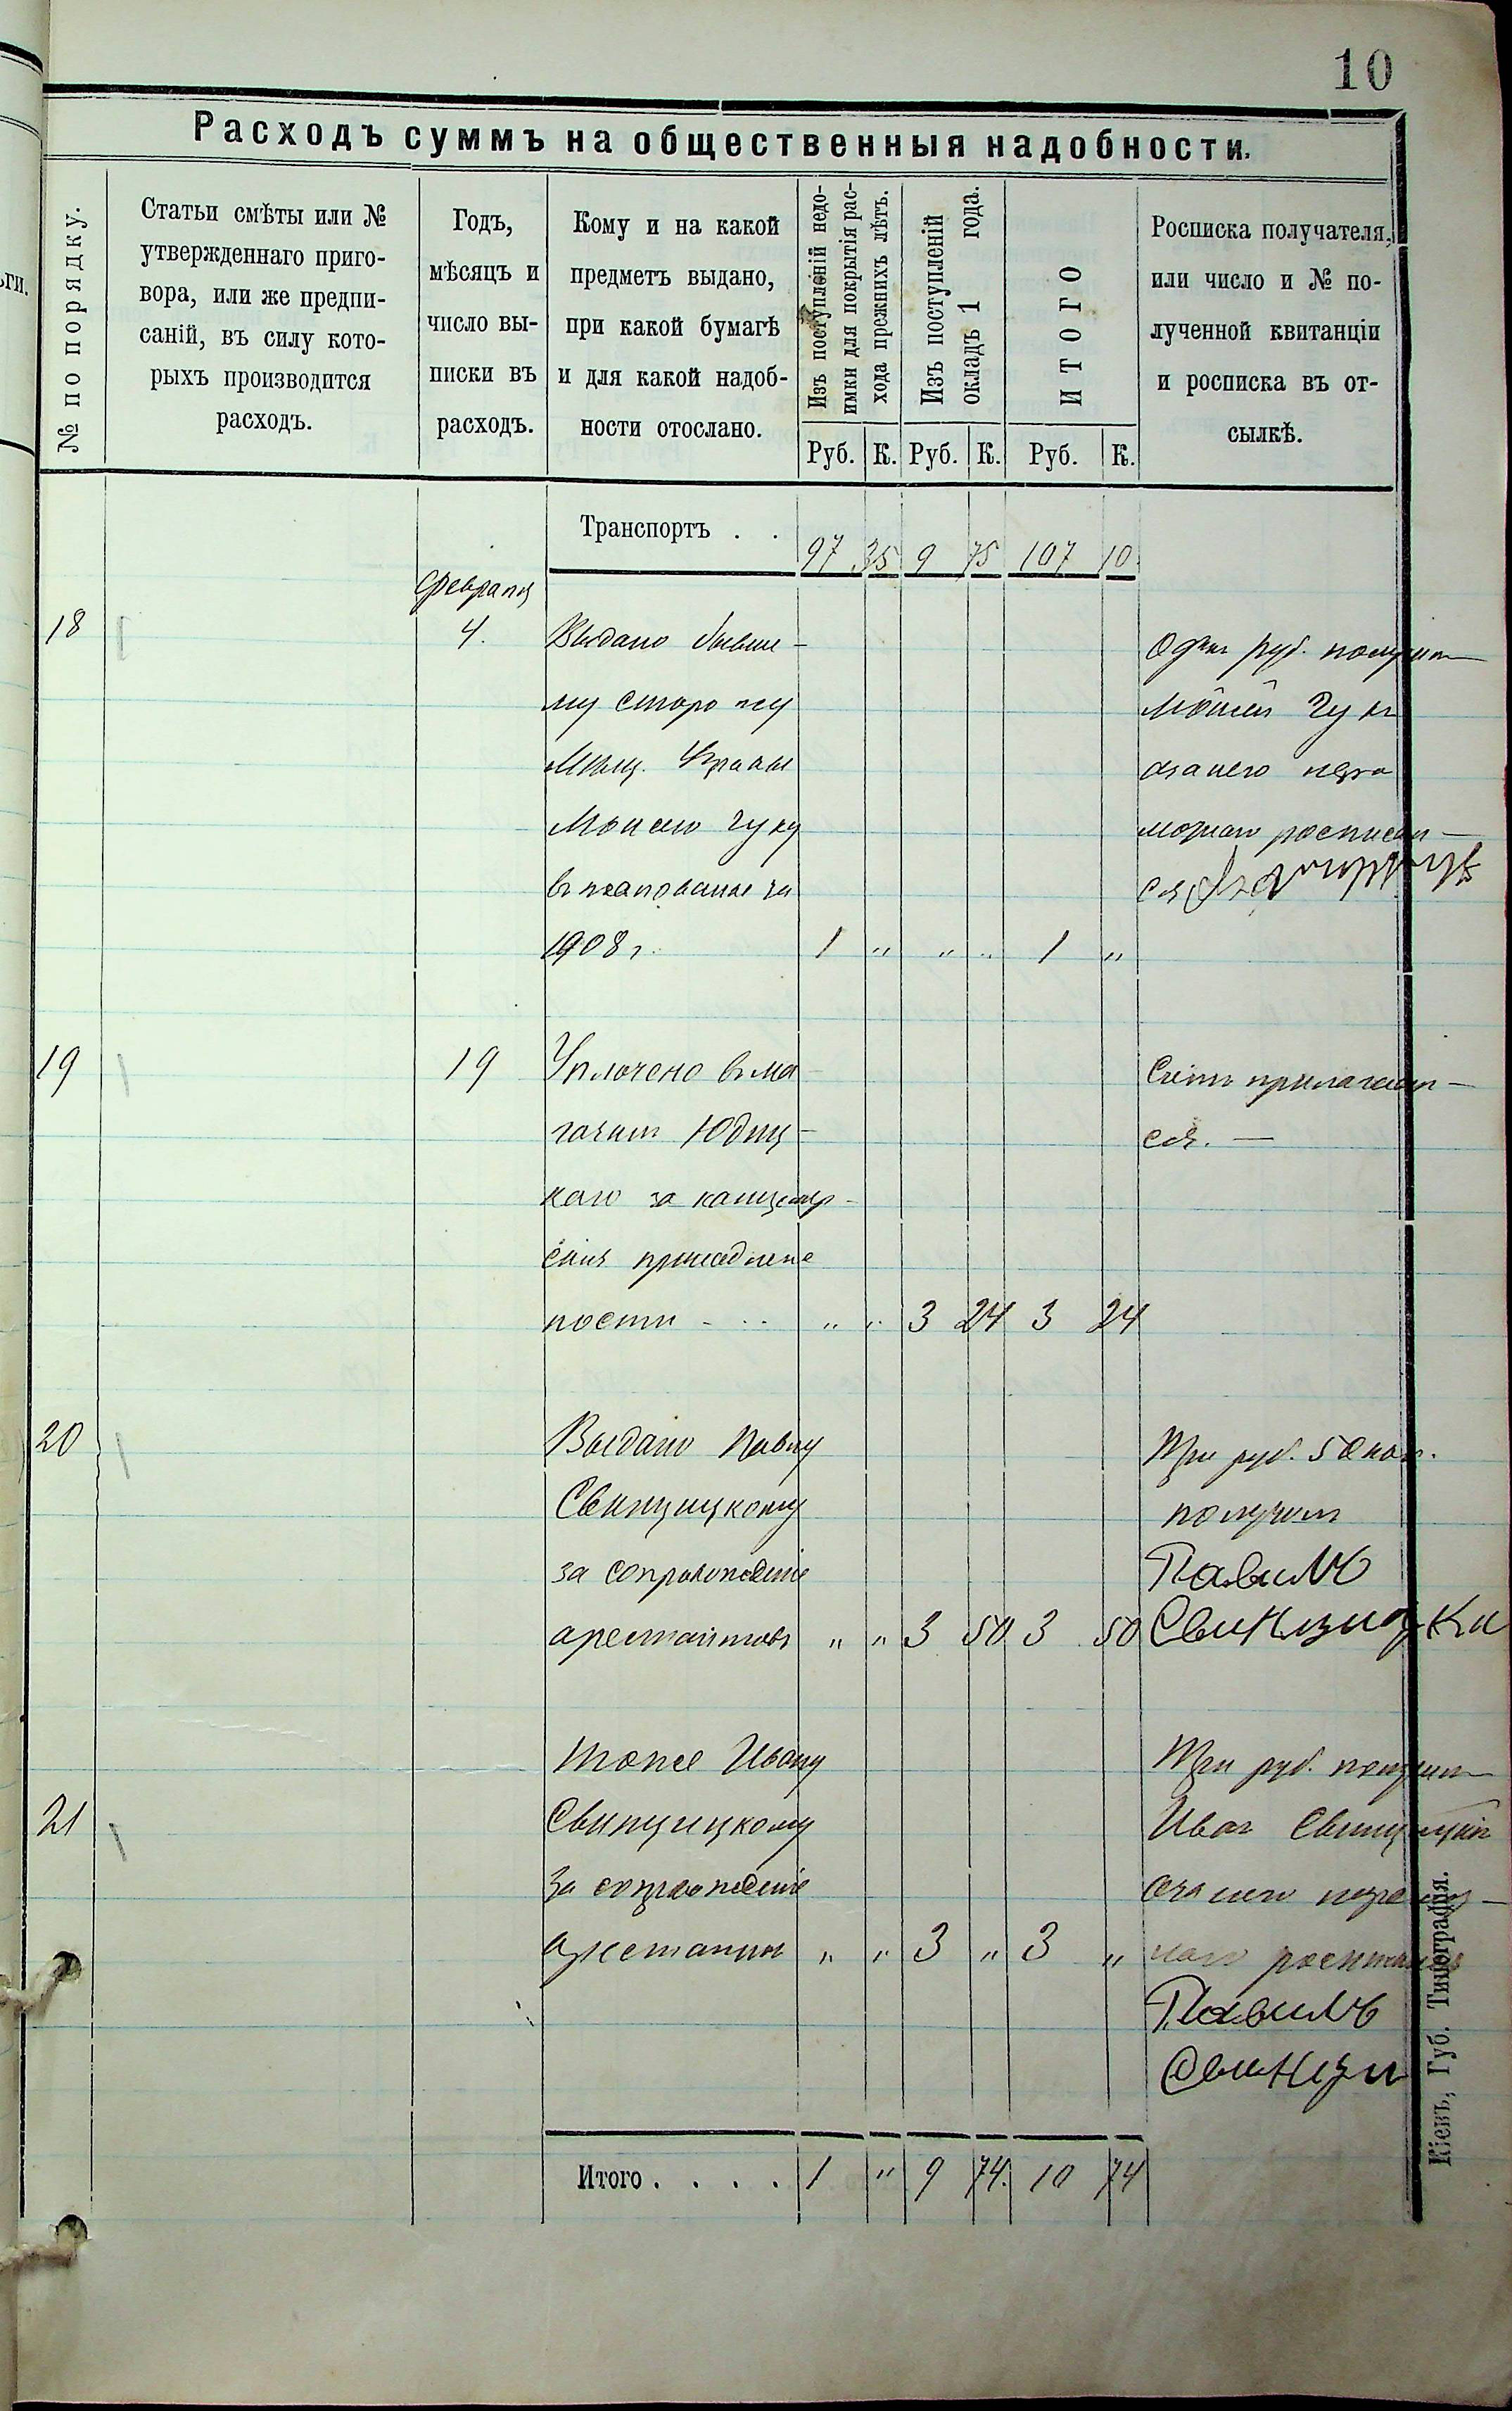 10
Расходъ суммъ на общественныя надобности.
ьги.
№ по порядку.
Статьи смѣты или №
утвержденнаго приго-
вора, или же предпи-
саній, въ силу кото-
рыхъ производится
расходъ.
Годъ,
мѣсяцъ и
число вы-
писки въ
расходъ.
Кому и на какой
предметъ выдано,
при какой бумагѣ
и для какой надоб-
ности отослано.
Изъ поступленій недо-
имки для покрытія рас-
хода прежнихъ лѣтъ.
Изъ поступленій
окладъ 1 года.
ИТОГО
Росписка получателя,
или число и № по-
лученной квитанціи
и росписка въ от-
сылкѣ.
Руб. К. Руб. К. Руб. К.
Транспортъ . . 97 35 9 75 107 10
Февраля
18 4. Выдано бывше-
му сторожу
Моисею Чуку
въ жалованье за
1908 г. 1 " " " 1 "
Одинъ руб. получилъ
Мойсей Чукъ
а за него негра
мотнаго росписал-
ся
19 19 Уплочено въ ма
газинъ Юдиц-
каго за канцеляр-
скія принадлеж
ности - . . " " 3 24 3 24
Счетъ прилагает-
ся. —
20 Выдано Павлу
Свинцицкому
за сопровожденіе
арестантовъ " " 3 50 3 50
Три руб. 50 коп.
получилъ
Павилъ
Свинзицки
21 тоже Ивану
Свинцицкому
за сопровожденіе
арестанта " " 3 " 3 "
Три руб. получилъ
Иван Свинцицкій
а за него неграмот-
наго
Павилъ
Свинцзи
Итого . . . . 1 " 9 74. 10 74
Кіевъ, Губ. Типографія.